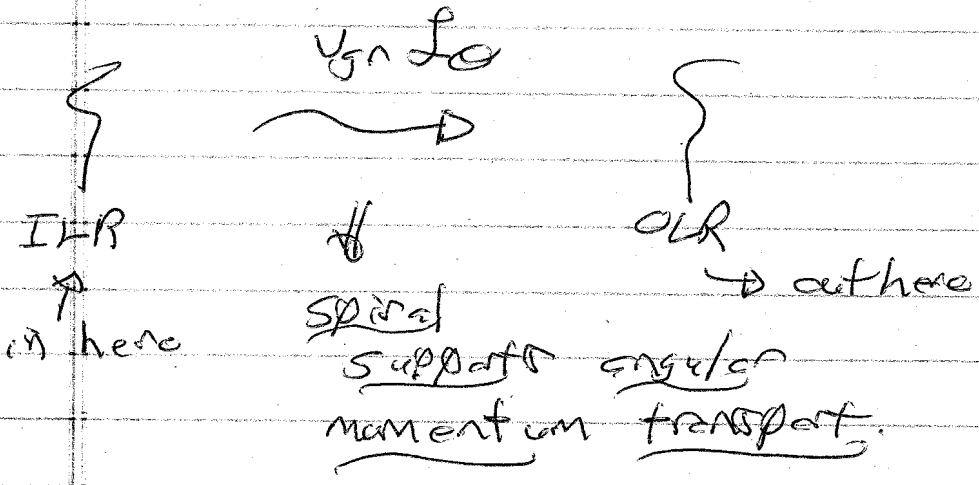 Vgr Lθ
ILR
OLR
→ out here
in here
⇓
spiral
supports angular
momentum transport.